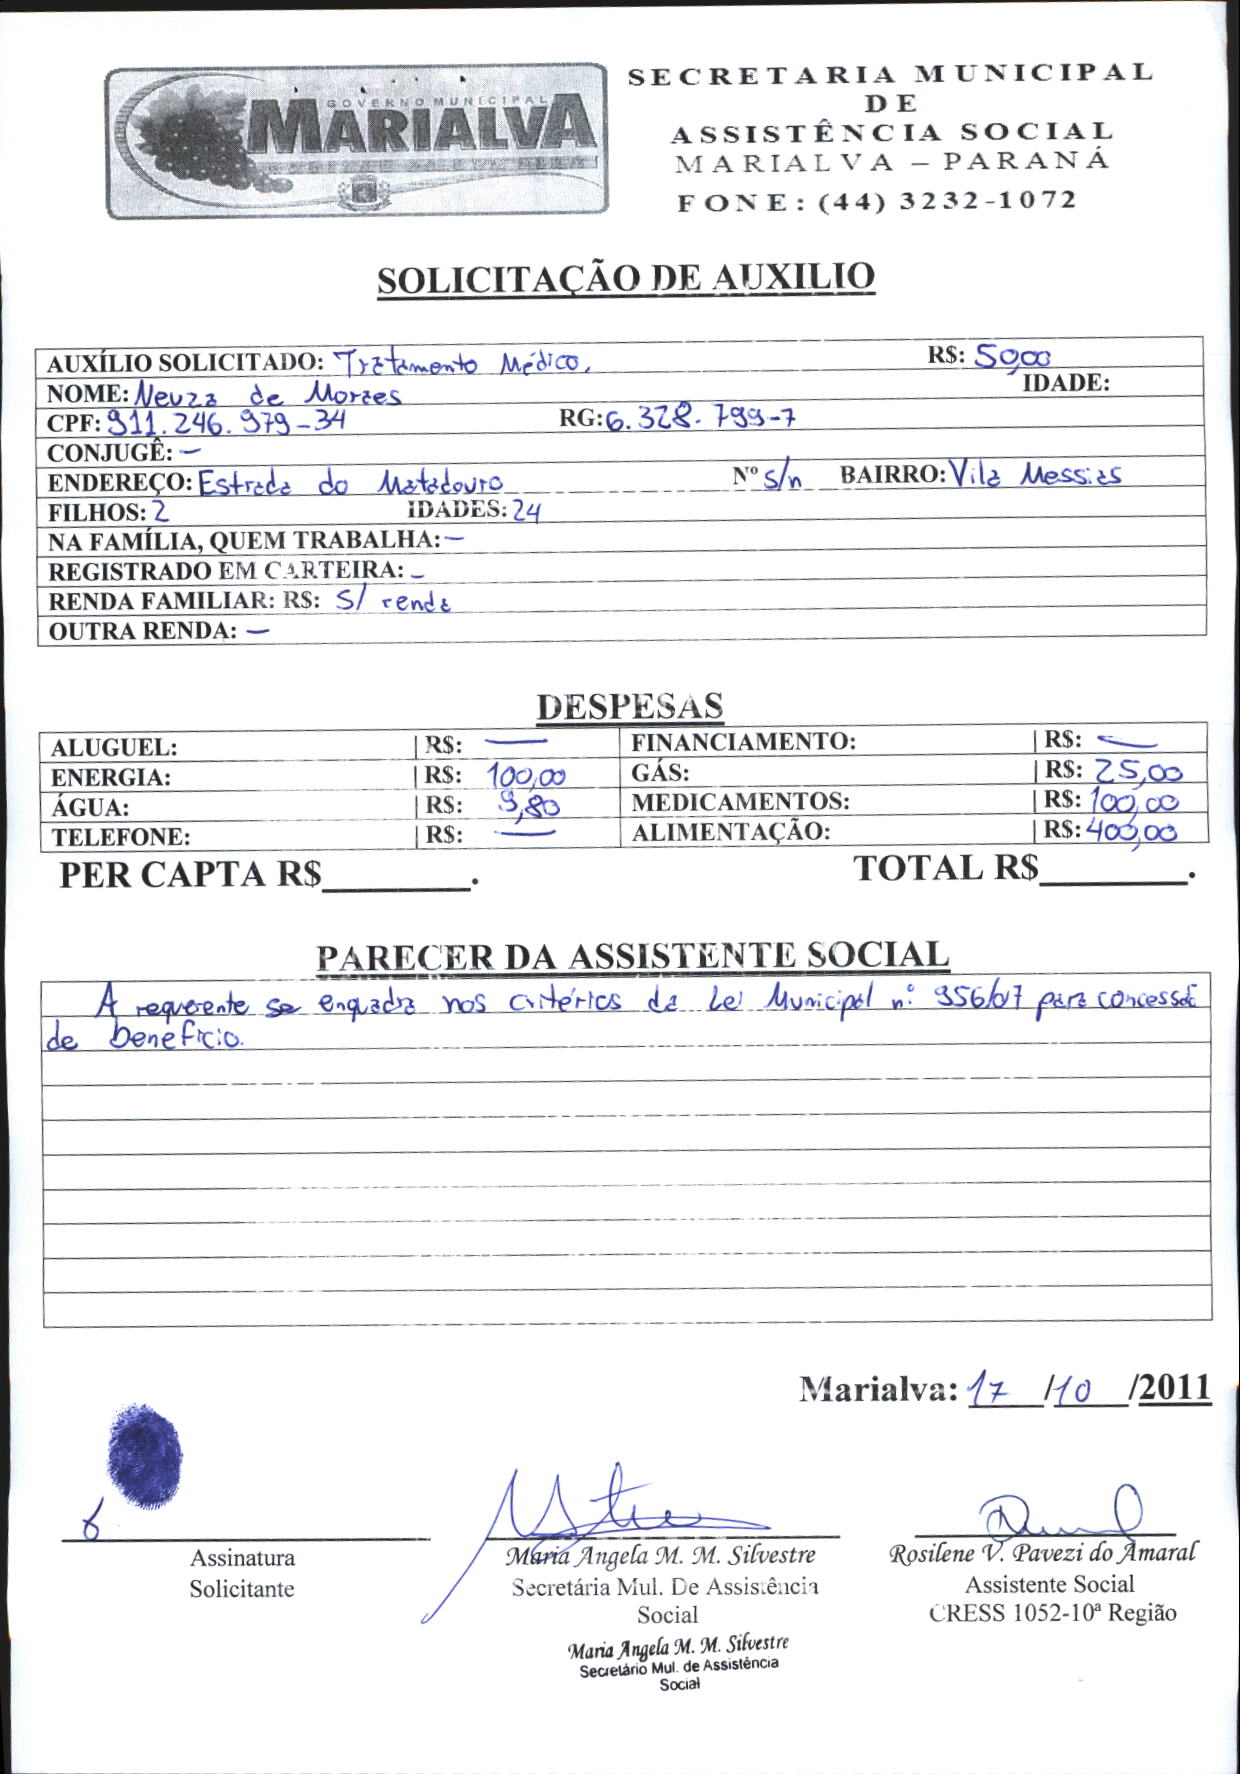 GOVERNO MUNICIPAL
MARIALVA
SECRETARIA MUNICIPAL
DE
ASSISTÊNCIA SOCIAL
MARIALVA – PARANÁ
FONE: (44) 3232-1072
SOLICITAÇÃO DE AUXILIO
AUXÍLIO SOLICITADO: Tratamento Médico. R$: 50,00
NOME: Neuza de Moraes IDADE:
CPF: 911.246.979-34 RG: 6.328.799-7
CONJUGÊ: –
ENDEREÇO: Estrada do Matadouro Nº s/n BAIRRO: Vila Messias
FILHOS: 2 IDADES: 24
NA FAMÍLIA, QUEM TRABALHA: –
REGISTRADO EM CARTEIRA: –
RENDA FAMILIAR: R$: S/ renda
OUTRA RENDA: –
DESPESAS
ALUGUEL: | R$: — FINANCIAMENTO: | R$: —
ENERGIA: | R$: 100,00 GÁS: | R$: 25,00
ÁGUA: | R$: 9,80 MEDICAMENTOS: | R$: 100,00
TELEFONE: | R$: — ALIMENTAÇÃO: | R$: 400,00
PER CAPTA R$________. TOTAL R$________.
PARECER DA ASSISTENTE SOCIAL
A requerente se enquadra nos critérios da Lei Municipal nº 956/07 para concessão
de benefício.
Marialva: 17 /10 /2011
Assinatura
Solicitante
Maria Angela M. M. Silvestre
Secretária Mul. De Assistência
Social
Maria Angela M. M. Silvestre
Secretário Mul. de Assistência
Social
Rosilene V. Pavezi do Amaral
Assistente Social
CRESS 1052-10ª Região